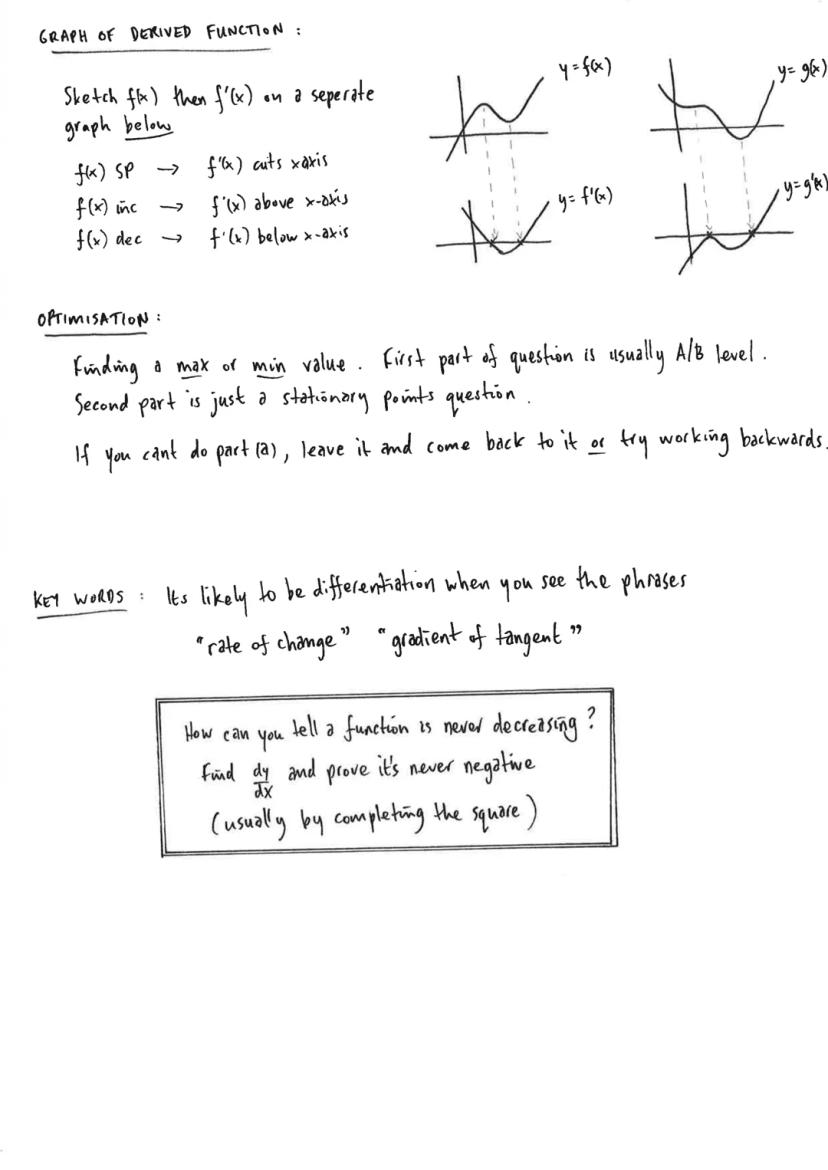 GRAPH OF DERIVED FUNCTION :
Sketch f(x) then f'(x) on a seperate
graph below
f(x) SP → f'(x) cuts x axis
f(x) inc → f'(x) above x-axis
f(x) dec → f'(x) below x-axis
y = f(x)
y = g(x)
y = f'(x)
y = g'(x)
OPTIMISATION :
Finding a max or min value. First part of question is usually A/B level.
Second part is just a stationary points question.
If you cant do part (a), leave it and come back to it or try working backwards.
KEY WORDS : Its likely to be differentiation when you see the phrases
"rate of change" "gradient of tangent"
How can you tell a function is never decreasing?
Find dy/dx and prove it's never negative
(usually by completing the square)